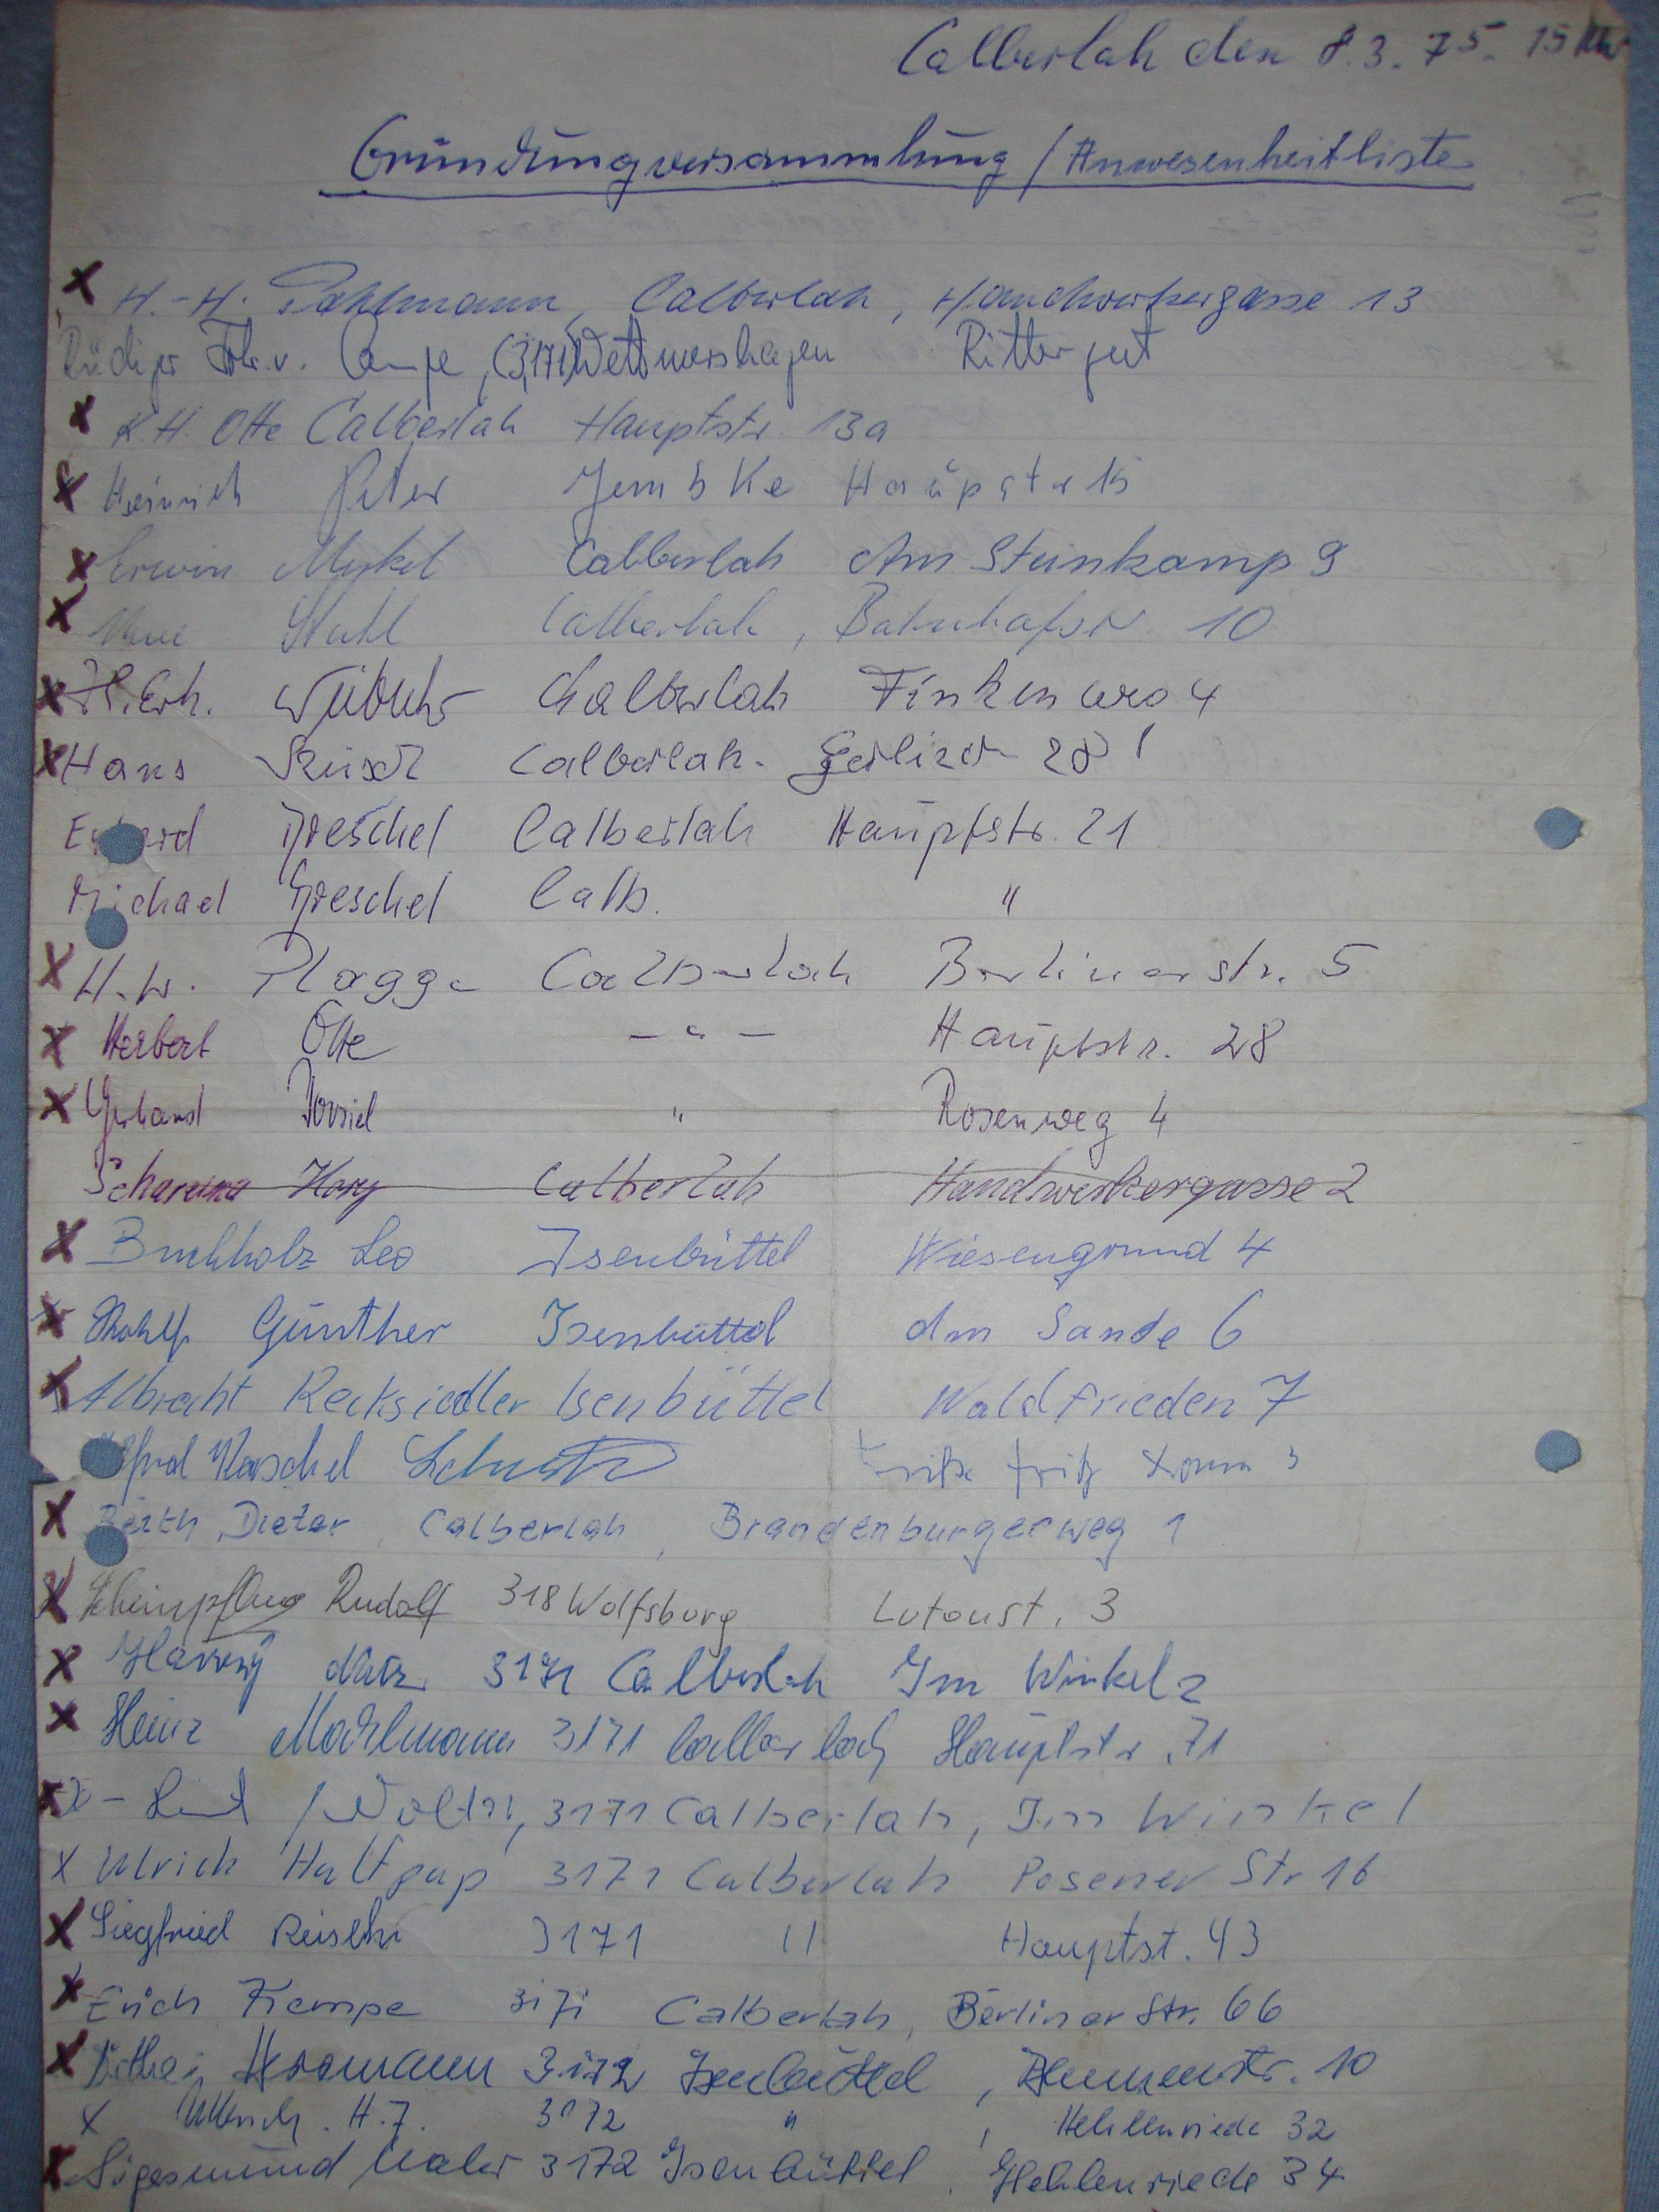 Calberlah den 8.3.75. 15 Uhr
Gründungversammlung / Anwesenheitliste
x H.-H. Pahlmann, Calberlah, Handwerkergasse 13
Rüdiger Frhr. v. Campe, (3171) Wettmershagen Rittergut
x K.H. Otte Calberlah Hauptstr 13a
x Heinrich Peter Jembke Haupstr 15
x Erwin Calberlah Am Steinkamp 9
x Stahl Calberlah, Bahnhofstr 10
x H. Erh. Calberlah Finkenweg 4
x Hans Calberlah. 28
Dreschel Calberlah Hauptstr. 21
Michael Dreschel Calb. "
x H.W. Plagge Calberlah Berlinerstr. 5
x Herbert Otte - " - Hauptstr. 28
x Gerhard " Rosenweg 4
Calberlah Handwerkergasse 2
x Buchholz Leo Isenbüttel Wiesengrund 4
x Günther Isenbüttel Am Sande 6
x Albrecht Recksiedler Isenbüttel Waldfrieden 7
3
x Barth, Dieter, Calberlah, Brandenburgerweg 1
x Rudolf 318 Wolfsburg 3
x 3171 Calberlah Im Winkel 2
x Heinz 3171 Calberlah Hauptstr. 71
x 3171 Calberlah, Im Winkel 1
x Ulrich Haltpap 3171 Calberlah Posener Str 16
x Siegfried 3171 " Hauptst. 43
x Erich Kempe 3171 Calberlah, Berliner Str. 66
x Hermann 3172 Isenbüttel, 10
x H.J. 3172 ", Hehlenriede 32
x Maler 3172 Isenbüttel, Hehlenriede 34